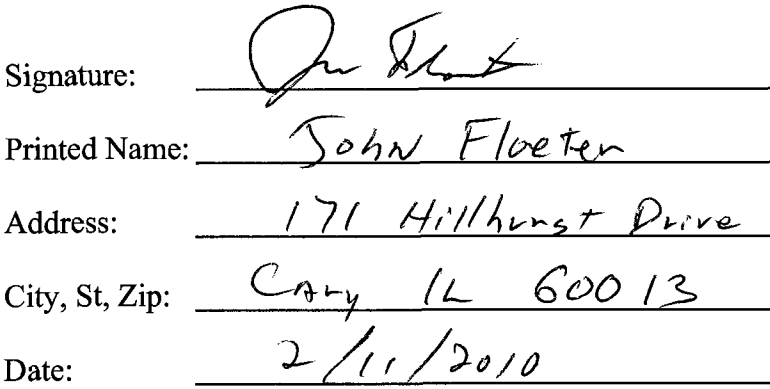 Signature:
Printed Name: John Floeter
Address: 171 Hillhurst Drive
City, St, Zip: Cary IL 60013
Date: 2/11/2010